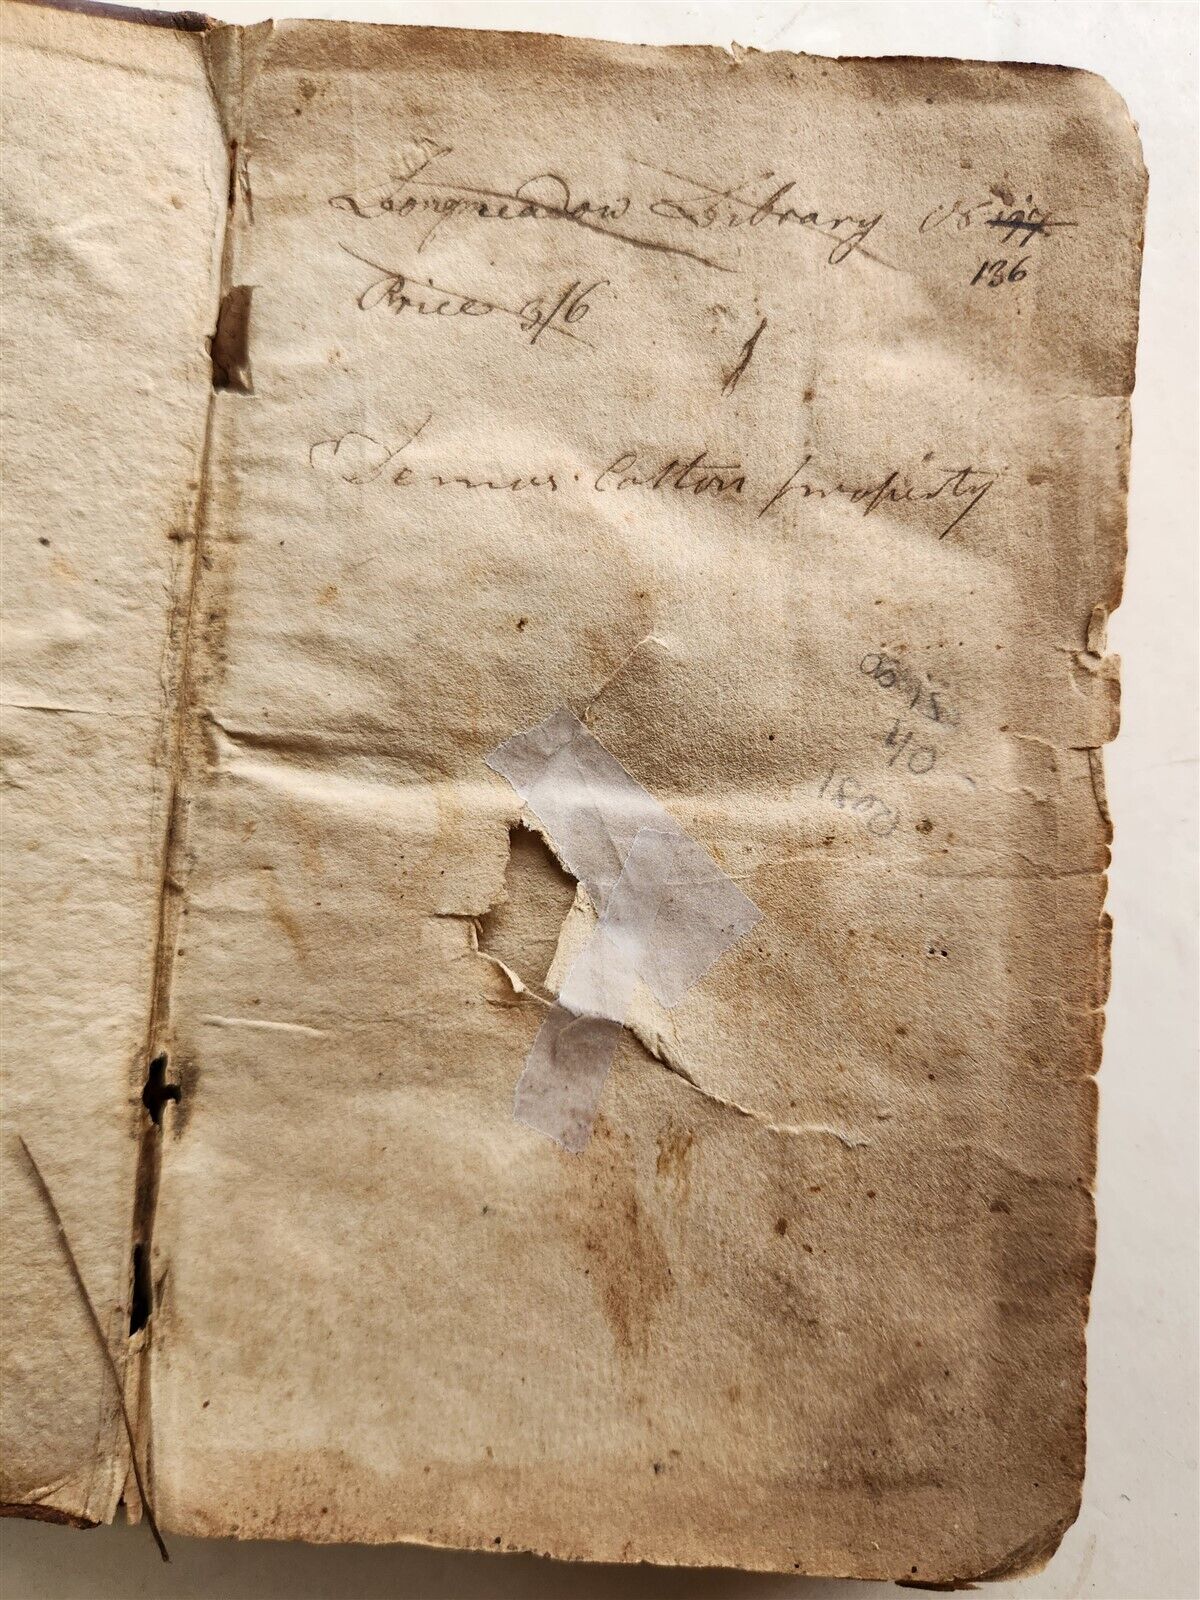 Longmeadow Library No 177
136
Price 3/6
Demas Colton property